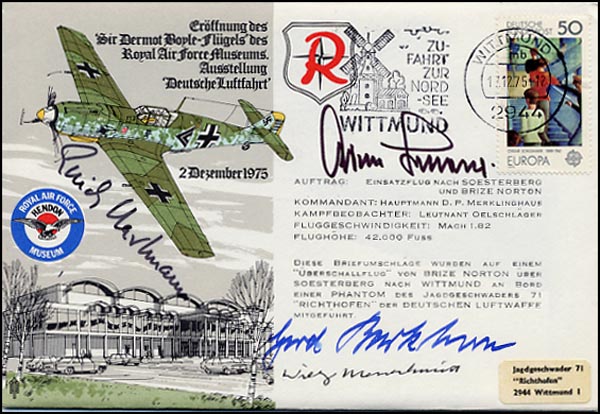 Eröffnung des
'Sir Dermot Boyle-Flügels' des
Royal Air Force Museums.
Ausstellung
'Deutsche Luftfahrt'
2 Dezember 1975
ROYAL AIR FORCE
HENDON
MUSEUM
R
ZU-
FAHRT
ZUR
NORD
-SEE
WITTMUND
WITTMUND
mb
2944
DEUTSCHE
BUNDESPOST
50
EUROPA
AUFTRAG: EINSATZFLUG NACH SOESTERBERG
UND BRIZE NORTON
KOMMANDANT: HAUPTMANN D. P. MERKLINGHAUS
KAMPFBEOBACHTER: LEUTNANT OELSCHLAGER
FLUGGESCHWINDIGKEIT: MACH 1.82
FLUGHÖHE: 42.000 FUSS
DIESE BRIEFUMSCHLAGE WURDEN AUF EINEM
"ÜBERSCHALLFLUG" VON BRIZE NORTON ÜBER
SOESTERBERG NACH WITTMUND AN BORD
EINER PHANTOM DES JAGDGESCHWADERS 71
"RICHTHOFEN" DER DEUTSCHEN LUFTWAFFE
MITGEFÜHRT.
Erich Hartmann
Gerd Barkhorn
Jagdgeschwader 71
"Richthofen"
2944 Wittmund 1